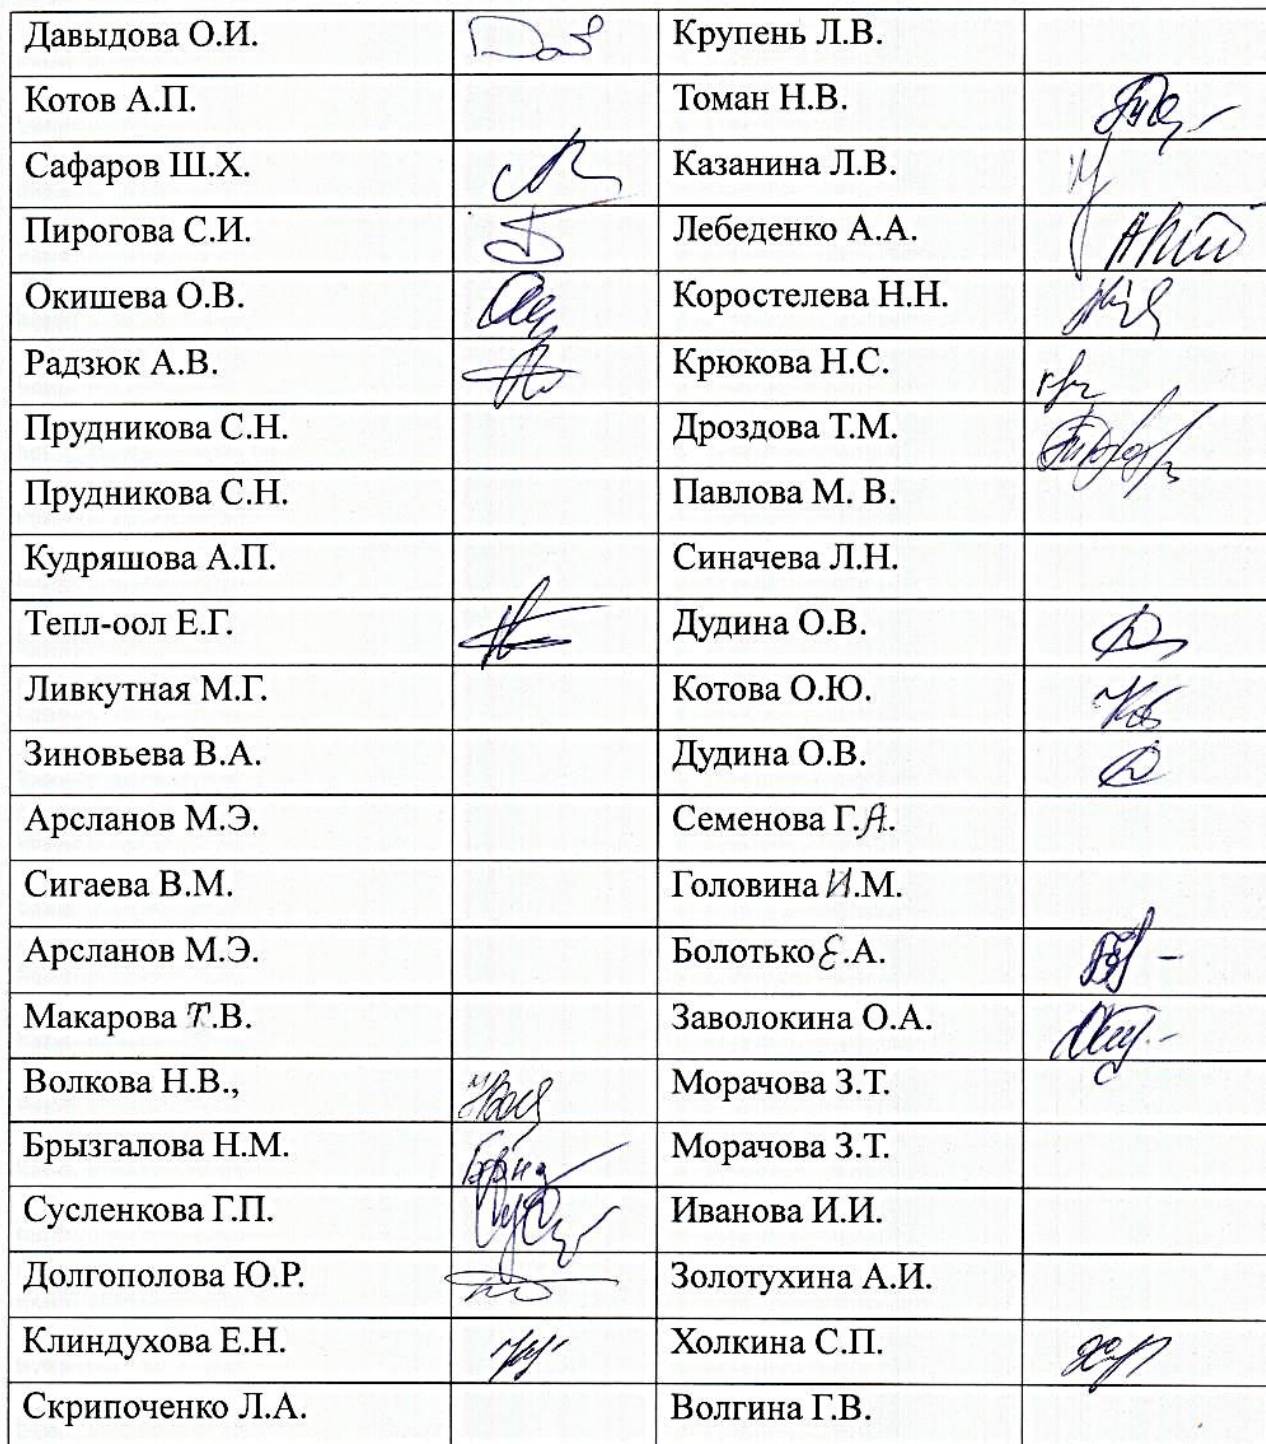 Давыдова О.И. Крупень Л.В.
Котов А.П. Томан Н.В.
Сафаров Ш.Х. Казанина Л.В.
Пирогова С.И. Лебеденко А.А.
Окишева О.В. Коростелева Н.Н.
Радзюк А.В. Крюкова Н.С.
Прудникова С.Н. Дроздова Т.М.
Прудникова С.Н. Павлова М. В.
Кудряшова А.П. Синачева Л.Н.
Тепл-оол Е.Г. Дудина О.В.
Ливкутная М.Г. Котова О.Ю.
Зиновьева В.А. Дудина О.В.
Арсланов М.Э. Семенова Г.А.
Сигаева В.М. Головина И.М.
Арсланов М.Э. Болотько Е.А.
Макарова Т.В. Заволокина О.А.
Волкова Н.В., Морачова З.Т.
Брызгалова Н.М. Морачова З.Т.
Сусленкова Г.П. Иванова И.И.
Долгополова Ю.Р. Золотухина А.И.
Клиндухова Е.Н. Холкина С.П.
Скрипоченко Л.А. Волгина Г.В.